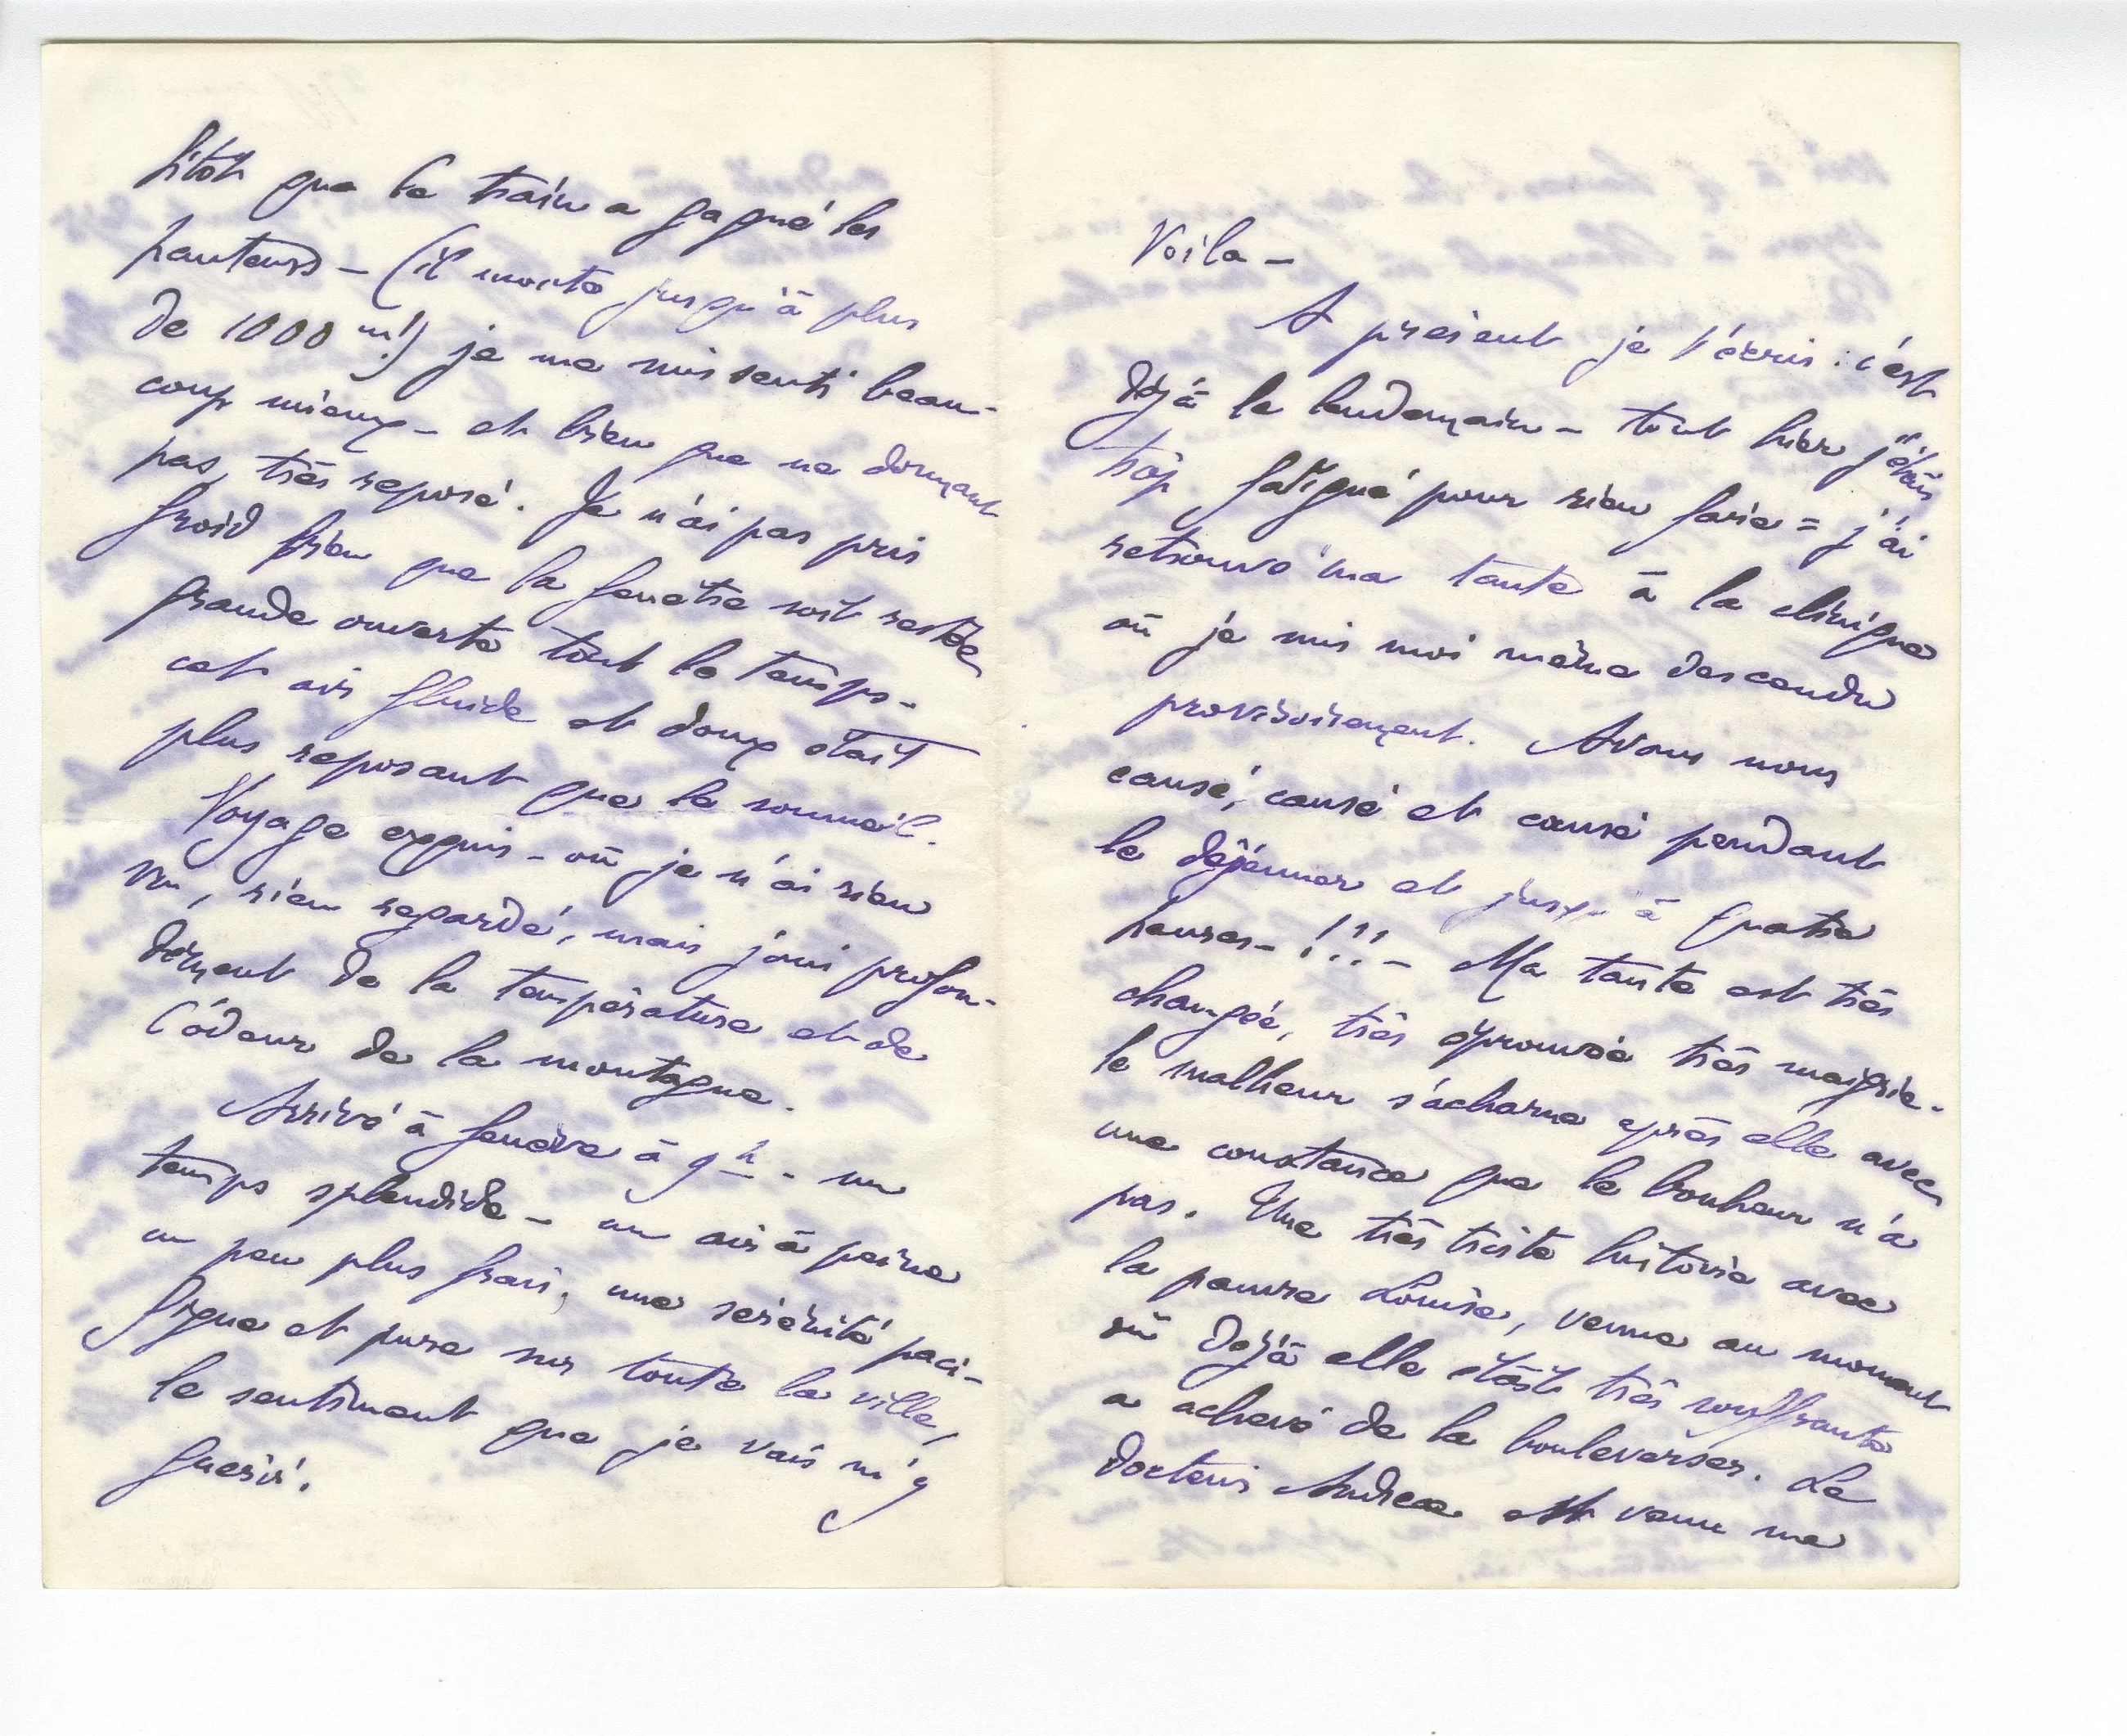 sitôt que le train a gagné les
hauteurs – (il monte jusqu'à plus
de 1000 m!) je me suis senti beau-
coup mieux – et bien que ne dormant
pas, très reposé. Je n'ai pas pris
froid bien que la fenêtre soit restée
grande ouverte tout le temps –
cet air fluide et doux était
plus reposant que le sommeil.
Voyage exquis – où je n'ai rien
vu, rien regardé, mais joui profon-
dément de la température et de
l'odeur de la montagne.
Arrivé à Genève à 9h – un
temps splendide – un air à peine
un peu plus frais, une sérénité paci-
fique et pure sur toute la ville,
le sentiment que je vais m'y
guérir.
Voila –
A présent je t'écris : c'est
déjà le lendemain – tout hier j'étais
trop fatigué pour rien faire = j'ai
retrouvé ma tante à la clinique
où je suis moi même descendu
provisoirement. Avons nous
causé, causé et causé pendant
le déjeuner et jusqu'à quatre
heures – !!! – Ma tante est très
changée, très éprouvée très maigrie.
le malheur s'acharne après elle avec
une constance que le bonheur n'a
pas. Une très triste histoire avec
la pauvre Louise, venue au moment
où déjà elle était très souffrante
a achevé de la bouleverser. Le
docteur Andreae est venu me